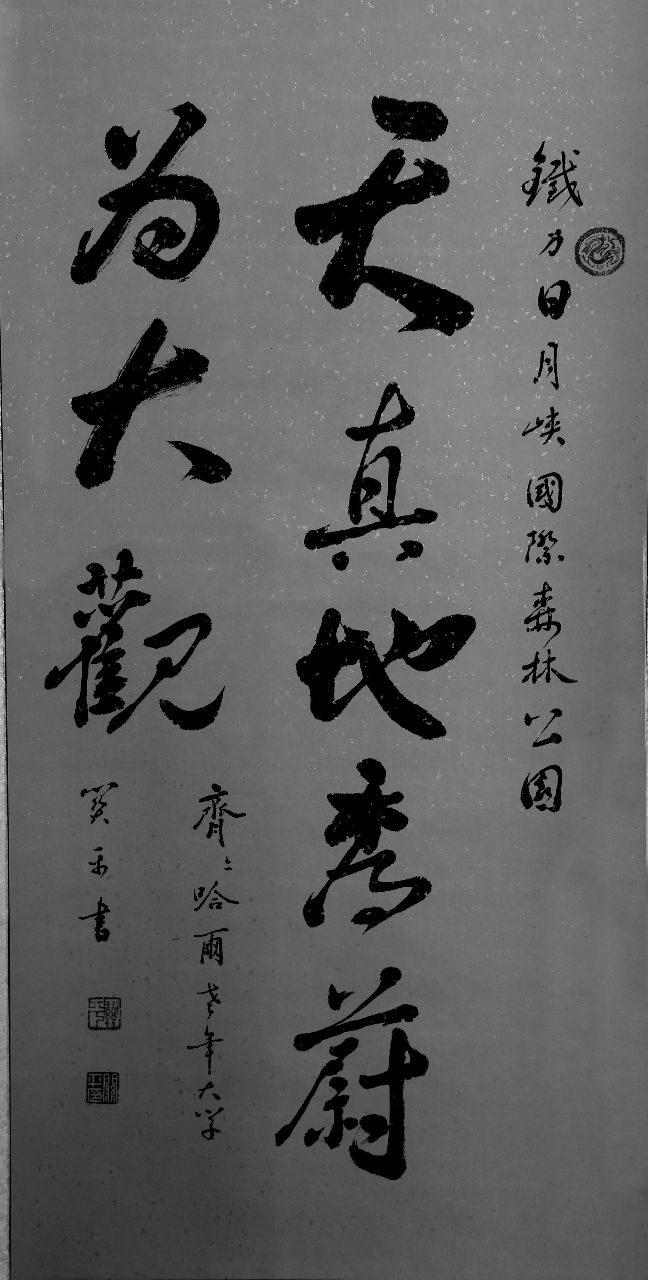 鐵力日月峽國際森林公園
天真地秀蔚
为大觀
齊〻哈爾老年大学
关平書